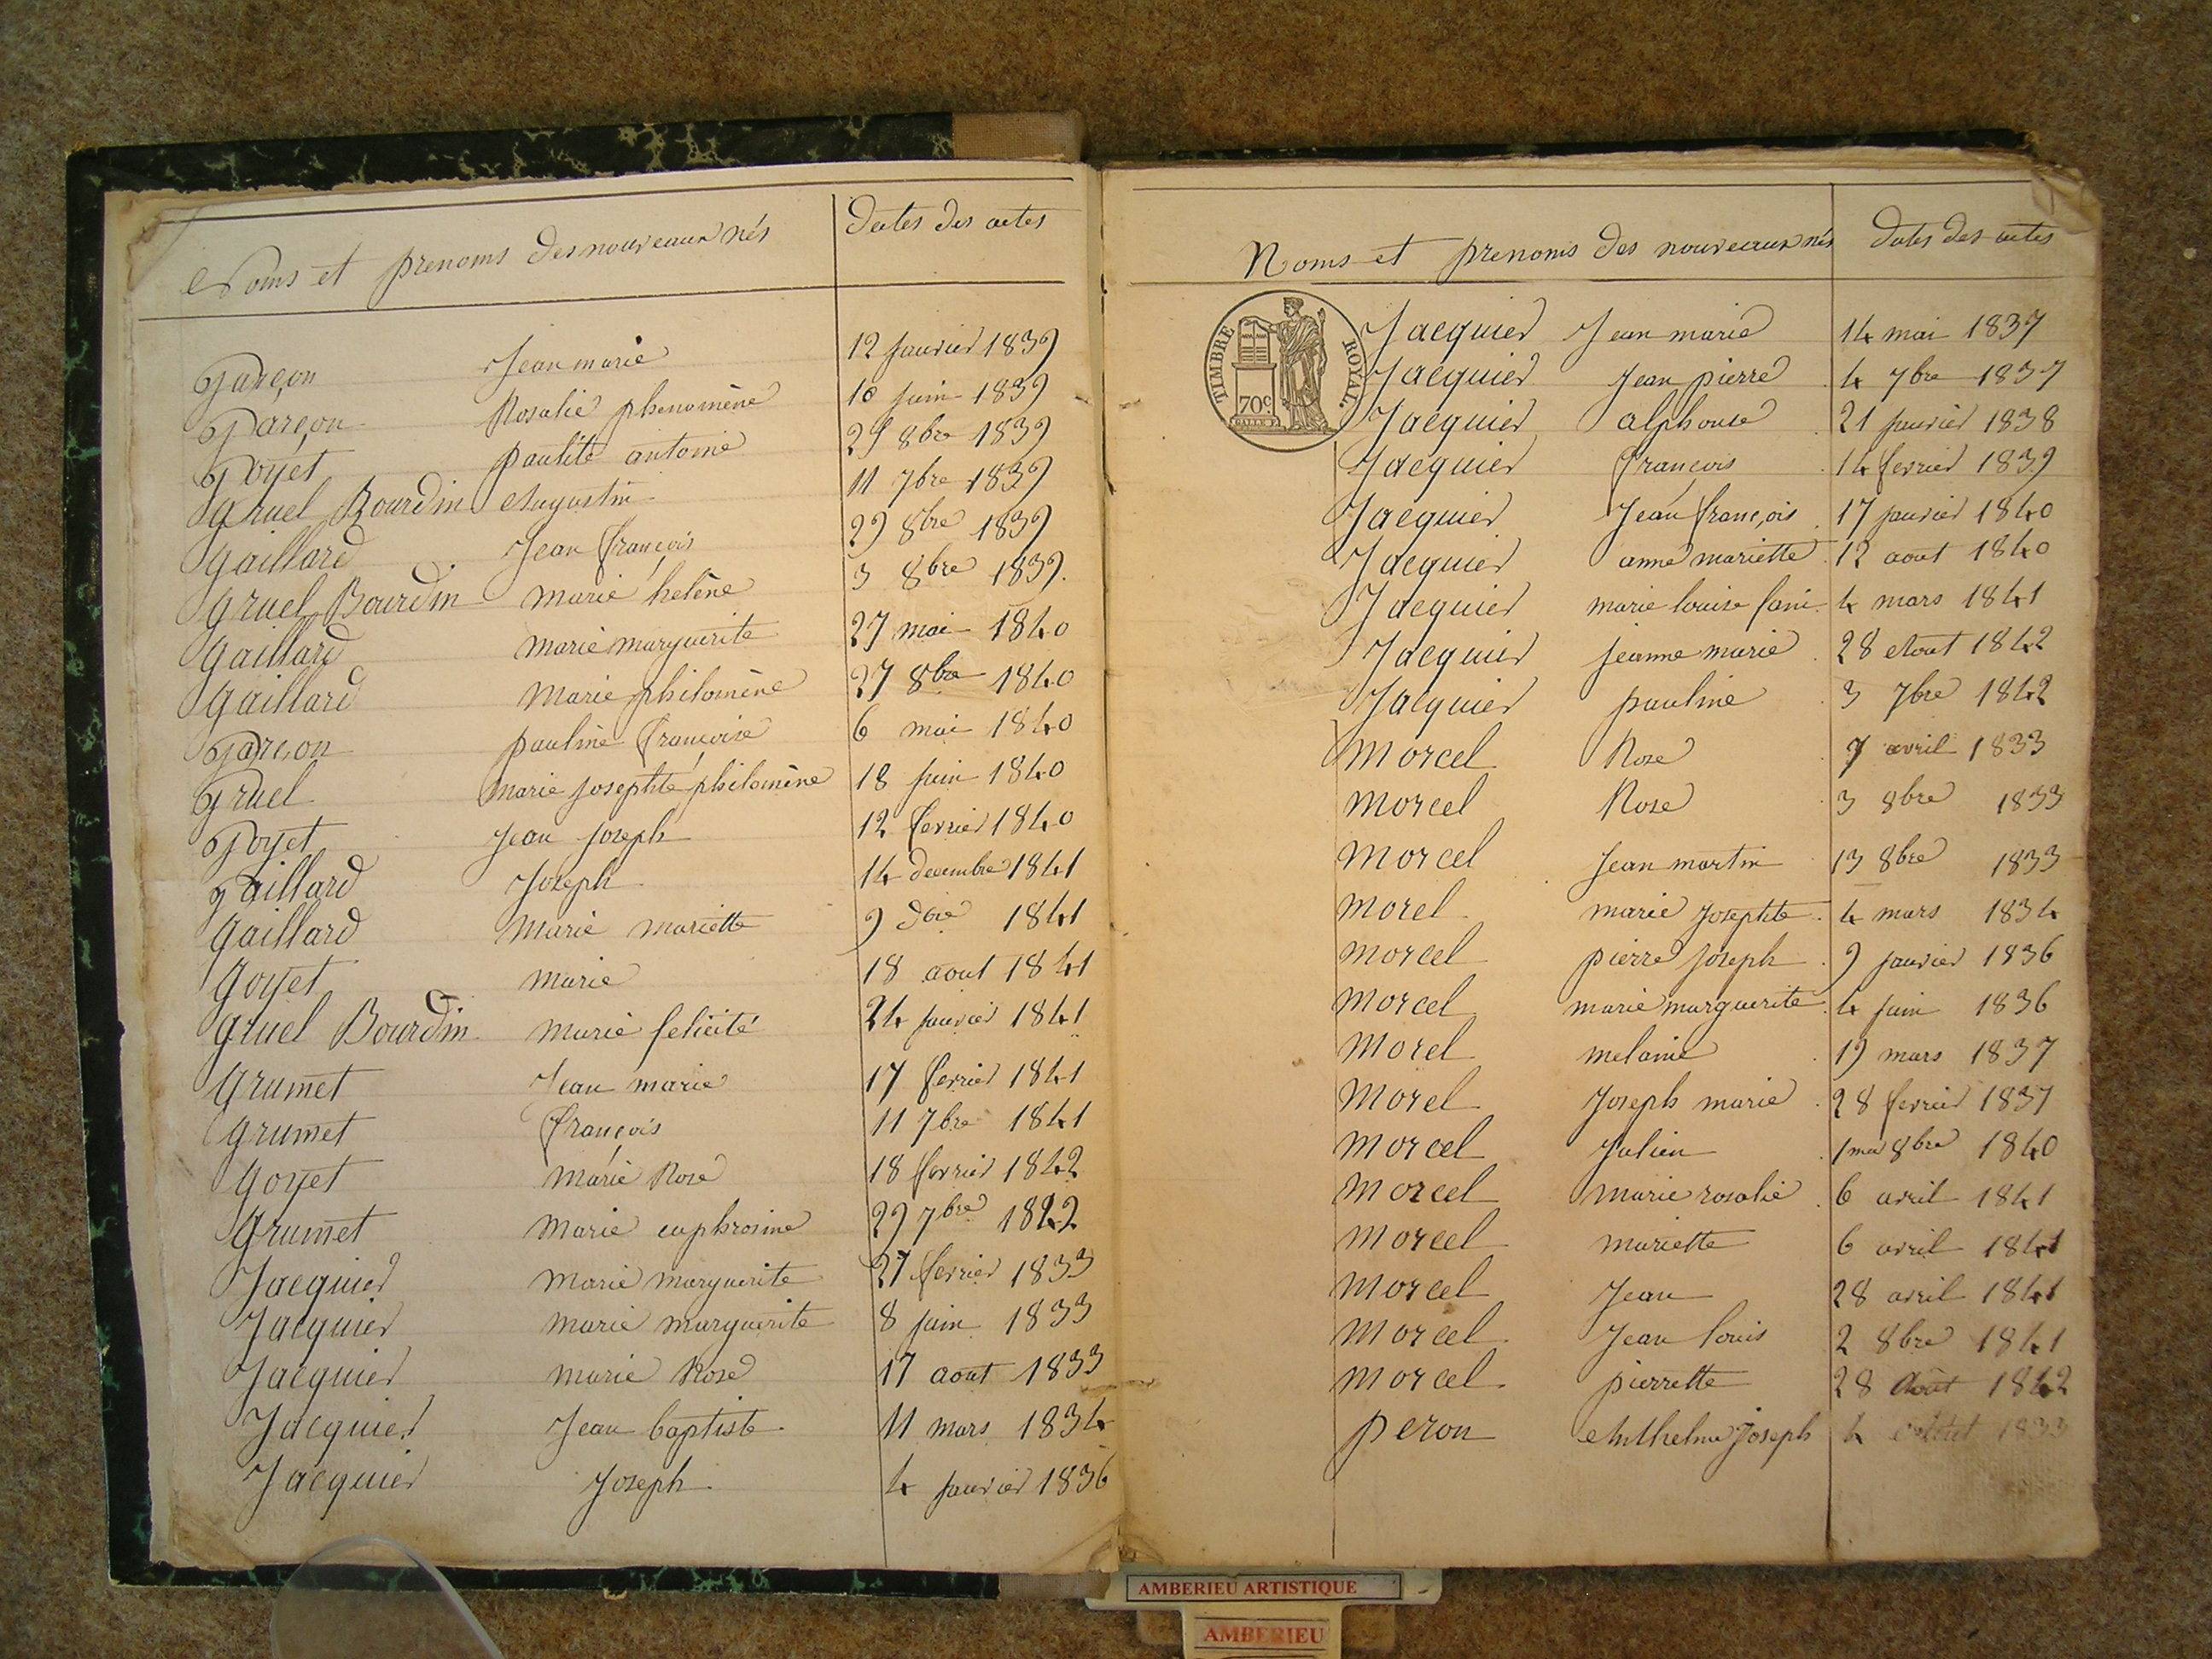 Noms et prenoms des nouveaux nés Dates des actes
Garçon Jean marie 12 janvier 1839
Garçon Rosalie phenomène 10 juin 1839
Goyet antoine 8bre 1839
Gruel Bourdin Augustin 11 7bre 1839
Gaillard Jean françois 29 8bre 1839
Gruel Bourdin marie helène 3 8bre 1839
Gaillard marie marguerite 27 mai 1840
Gaillard marie philomène 27 8bre 1840
Garçon pauline françoise 6 mai 1840
Gruel marie josephte philomène 18 juin 1840
Goyet Jean joseph 12 fevrier 1840
gaillard Joseph 14 decembre 1841
gaillard marie mariette 9 1841
goyet marie 18 aout 1841
gruel Bourdin marie felicité 24 janvier 1841
grumet Jean marie 17 fevrier 1841
grumet françois 11 7bre 1841
goyet marie Rose 18 fevrier 1842
grumet marie euphrosine 29 7bre 1842
Jacquier marie marguerite 27 fevrier 1833
Jacquier marie marguerite 8 juin 1833
Jacquier marie Rose 17 aout 1833
Jacquier Jean baptiste 11 mars 1834
Jacquier Joseph 4 janvier 1836
Noms et prenoms des nouveaux nés dates des actes
TIMBRE ROYAL.
70c
Jacquier Jean marie 14 mai 1837
Jacquier Jean pierre 4 7bre 1837
Jacquier alphonse 21 janvier 1838
Jacquier françois 14 fevrier 1839
Jacquier Jean françois 17 janvier 1840
Jacquier anne mariette 12 aout 1840
Jacquier marie louise fani 4 mars 1841
Jacquier jeanne marie 28 Aout 1842
Jacquier pauline 3 7bre 1842
morcel Rose 7 avril 1833
morcel Rose 3 8bre 1833
morcel Jean martin 13 8bre 1833
morel marie Josephte 4 mars 1834
morcel pierre joseph 9 janvier 1836
morcel marie marguerite 4 juin 1836
morel melanie 19 mars 1837
morel Joseph marie 28 fevrier 1837
morcel Julien 8bre 1840
morcel marie rosalie 6 avril 1841
morcel mariette 6 avril 1841
morcel Jean 28 avril 1841
morcel Jean louis 2 8bre 1841
morcel pierrette 28 Août 1842
peron Anthelme Joseph 4 1833
AMBERIEU ARTISTIQUE
AMBERIEU